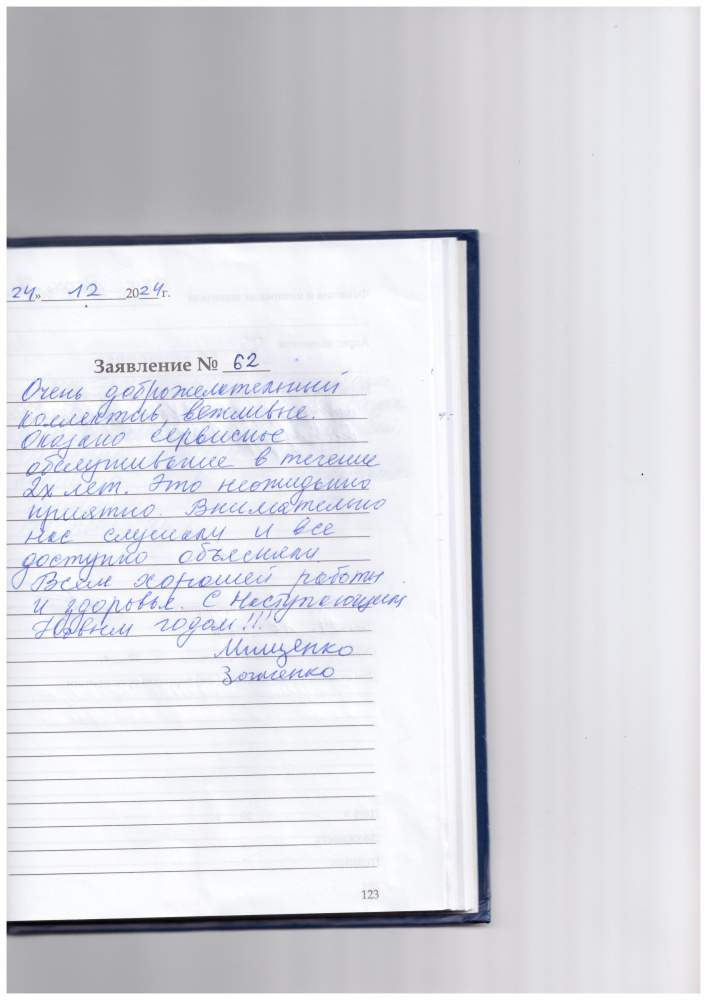 24» 12 2024г.
Заявление № 62
Очень доброжелательный
коллектив, вежливые.
Оказано сервисное
обслуживание в течение
2х лет. Это неожиданно
приятно. Внимательно
нас слушали и все
доступно объясняли.
Всем хорошей работы
и здоровья. С Наступающим
Новым годом!!!
Мищенко
123